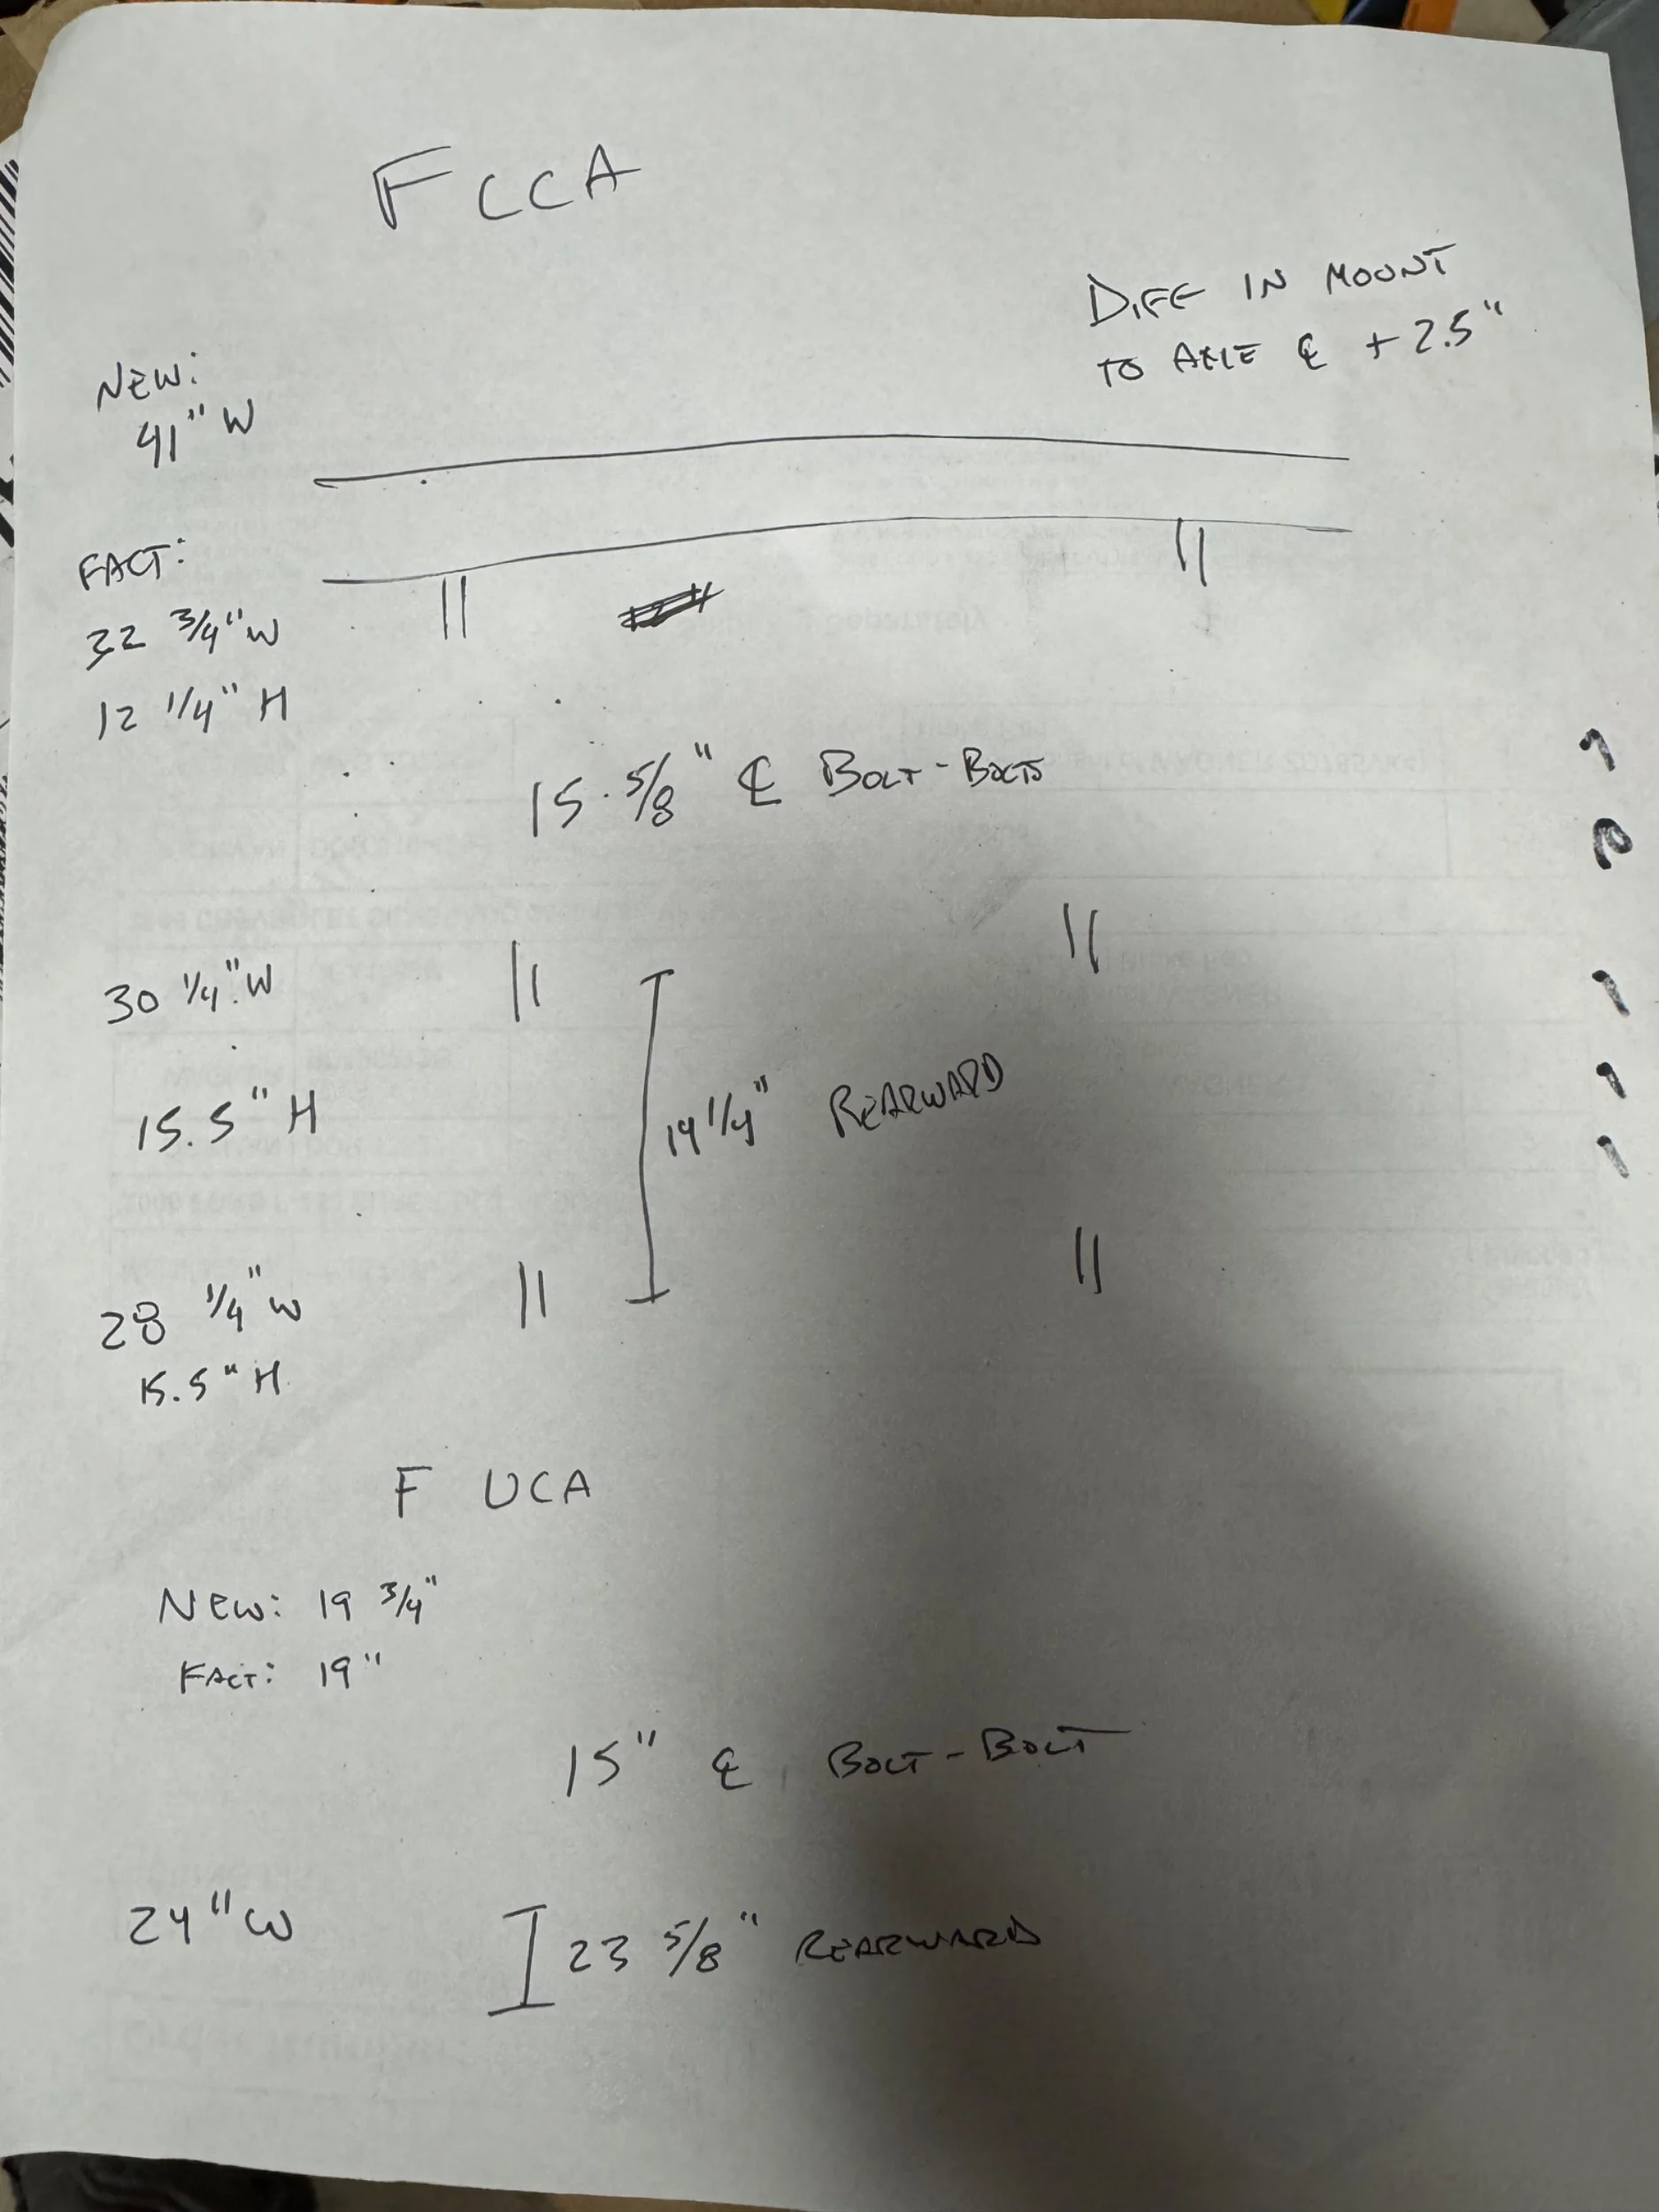 F CCA
DIFF IN MOUNT
TO AXLE ℄ + 2.5"
NEW:
41" W
FACT:
32 3/4" W
12 1/4" H
15 5/8" ℄ BOLT-BOLTS
30 1/4" W
19 1/4" REARWARD
15.5" H
28 1/4" W
15.5" H
F UCA
NEW: 19 3/4"
FACT: 19"
15" ℄ BOLT-BOLT
24" W
23 5/8" REARWARD